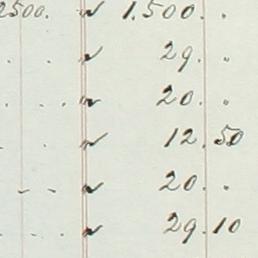 2500. " 1.500. "
. . " 29. "
. . . " 20. "
. . . " 12. 50
. - - " 20. "
. - . . " 29. 10